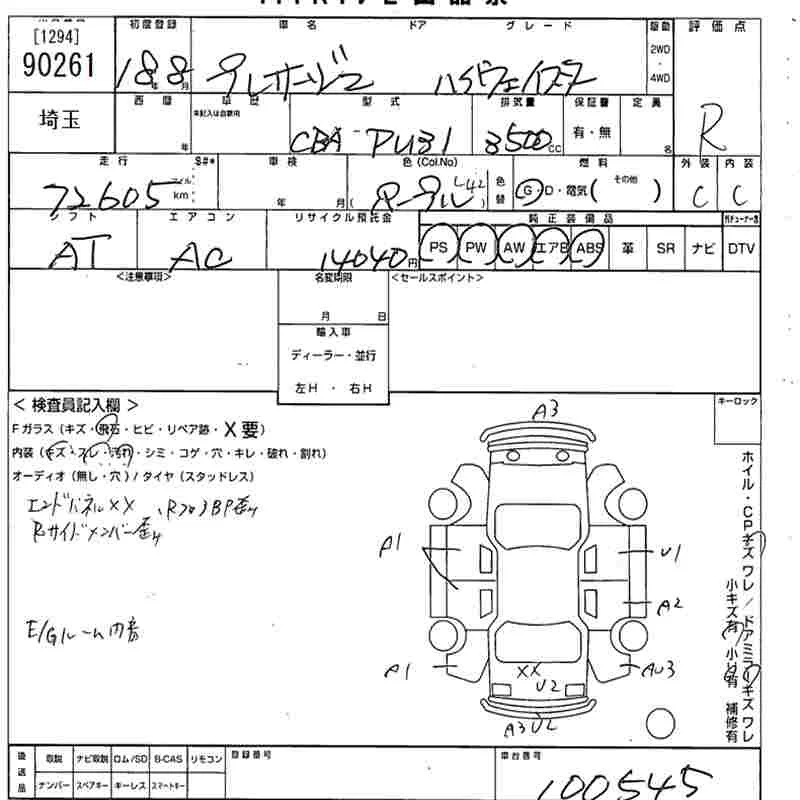 [1294]
初度登録 車名 ドア グレード 駆動 評価点
90261
18年 8月
2WD
・
4WD
R
埼玉
西暦 車歴 型式 排気量 保証書 定員
未記入は自家用
年
CBA-PU31 3500cc 有・無 名
走行 S#* 車検 色(Col.No) 燃料 外装 内装
72605 マイル km 年 月 パール L42 色替 G・D・電気( その他 ) C C
シフト エアコン リサイクル預託金 純正装備品
AT AC 14040円 PS PW AW エアB ABS 革 SR ナビ DTV
<注意事項> 名変期限 <セールスポイント>
月 日
輸入車
ディーラー・並行
左H ・ 右H
< 検査員記入欄 > キーロック
Fガラス(キズ・飛石・ヒビ・リペア跡・X要)
内装(キズ・スレ・汚れ・シミ・コゲ・穴・キレ・破れ・割れ)
オーディオ(無し・穴)/タイヤ(スタッドレス)
エンドパネルXX
Rサイドメンバー歪み
E/Gルーム内音
A3
A1
U1
A2
A1
XX
U2
AU3
A3U2
ホイル・CPキズ ワレ/ドアミラーキズ ワレ
補修有
後送品 取説 ナビ取説 ロム/SD B-CAS リモコン 登録番号 車台番号
ナンバー スペアキー キーレス スマートキー
100545